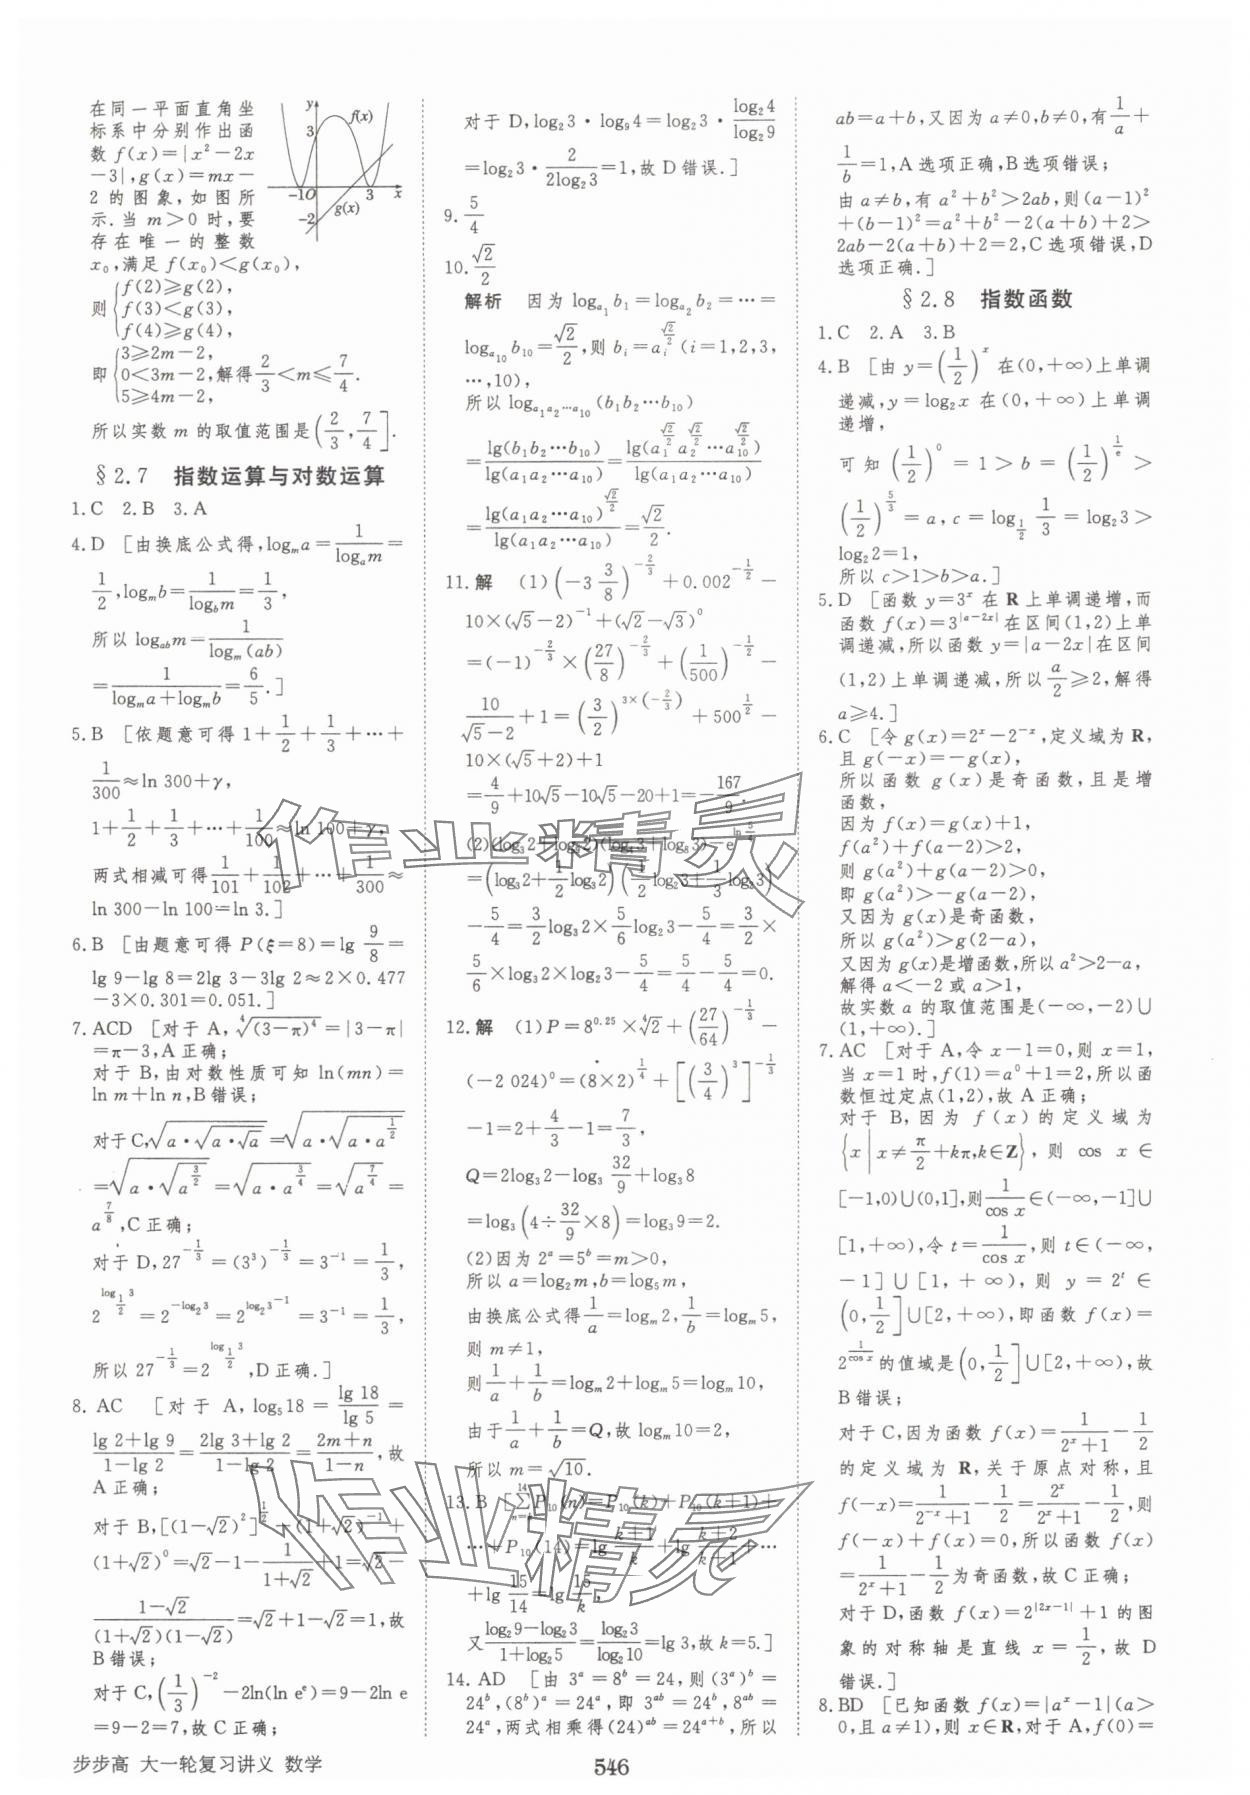 在同一平面直角坐
标系中分别作出函
数 f(x)=|x²-2x
-3|,g(x)=mx-
2 的图象,如图所
示.当 m>0 时,要
存在唯一的整数
x₀,满足 f(x₀)<g(x₀),
y
f(x)
3
-1 O 3 x
-2 g(x)
则 {f(2)≥g(2),
f(3)<g(3),
f(4)≥g(4),
即 {3≥2m-2,
0<3m-2,解得 2/3<m≤7/4.
5≥4m-2,
所以实数 m 的取值范围是(2/3,7/4].
§2.7 指数运算与对数运算
1.C 2.B 3.A
4.D [由换底公式得,logₘa=1/logₐm=
1/2,logₘb=1/log_b m=1/3,
所以 log_ab m=1/logₘ(ab)
=1/(logₘa+logₘb)=6/5.]
5.B [依题意可得 1+1/2+1/3+…+
1/300≈ln 300+γ,
1+1/2+1/3+…+1/100≈ln 100+γ,
两式相减可得1/101+1/102+…+1/300≈
ln 300-ln 100=ln 3.]
6.B [由题意可得 P(ξ=8)=lg 9/8=
lg 9-lg 8=2lg 3-3lg 2≈2×0.477
-3×0.301=0.051.]
7.ACD [对于 A,⁴√(3-π)⁴=|3-π|
=π-3,A 正确;
对于 B,由对数性质可知 ln(mn)=
ln m+ln n,B 错误;
对于 C,√(a·√(a·√a))=√(a·√(a·a^(1/2)))
=√(a·√(a^(3/2)))=√(a·a^(3/4))=√(a^(7/4))=
a^(7/8),C 正确;
对于 D,27^(-1/3)=(3³)^(-1/3)=3⁻¹=1/3,
2^(log_(1/2)3)=2^(-log₂3)=2^(log₂3⁻¹)=3⁻¹=1/3,
所以 27^(-1/3)=2^(log_(1/2)3),D 正确.]
8. AC [对于 A,log₅18=lg 18/lg 5=
(lg 2+lg 9)/(1-lg 2)=(2lg 3+lg 2)/(1-lg 2)=(2m+n)/(1-n),故
A 正确;
对于 B,[(1-√2)²]^(1/2)-(1+√2)⁻¹+
(1+√2)⁰=√2-1-1/(1+√2)+1=√2-
(1-√2)/((1+√2)(1-√2))=√2+1-√2=1,故
B 错误;
对于 C,(1/3)⁻²-2ln(ln eᵉ)=9-2ln e
=9-2=7,故 C 正确;
对于 D,log₂3·log₉4=log₂3·log₂4/log₂9
=log₂3·2/(2log₂3)=1,故 D 错误.]
9. 5/4
10. √2/2
解析 因为 log_a₁ b₁=log_a₂ b₂=…=
log_a₁₀ b₁₀=√2/2,则 bᵢ=aᵢ^(√2/2)(i=1,2,3,
…,10),
所以 log_(a₁a₂…a₁₀)(b₁b₂…b₁₀)
=lg(b₁b₂…b₁₀)/lg(a₁a₂…a₁₀)=lg(a₁^(√2/2)a₂^(√2/2)…a₁₀^(√2/2))/lg(a₁a₂…a₁₀)
=lg(a₁a₂…a₁₀)^(√2/2)/lg(a₁a₂…a₁₀)=√2/2.
11.解 (1)(-3 3/8)^(-2/3)+0.002^(-1/2)-
10×(√5-2)⁻¹+(√2-√3)⁰
=(-1)^(-2/3)×(27/8)^(-2/3)+(1/500)^(-1/2)-
10/(√5-2)+1=(3/2)^(3×(-2/3))+500^(1/2)-
10×(√5+2)+1
=4/9+10√5-10√5-20+1=-167/9.
(2)(log₃2+log₉2)(log₄3+log₈3)-e^(ln 5/4)
=(log₃2+1/2log₃2)(1/2log₂3+1/3log₂3)
-5/4=3/2log₃2×5/6log₂3-5/4=3/2×
5/6×log₃2×log₂3-5/4=5/4-5/4=0.
12.解 (1)P=8^0.25×⁴√2+(27/64)^(-1/3)-
(-2 024)⁰=(8×2)^(1/4)+[(3/4)³]^(-1/3)
-1=2+4/3-1=7/3,
Q=2log₃2-log₃32/9+log₃8
=log₃(4÷32/9×8)=log₃9=2.
(2)因为 2ᵃ=5ᵇ=m>0,
所以 a=log₂m,b=log₅m,
由换底公式得1/a=logₘ2,1/b=logₘ5,
则 m≠1,
则1/a+1/b=logₘ2+logₘ5=logₘ10,
由于1/a+1/b=Q,故 logₘ10=2,
所以 m=√10.
13.B [∑P₁₀(n)=P₁₀(k)+P₁₀(k+1)+
…+P₁₀(14)=lg (k+1)/k+lg (k+2)/(k+1)+…
+lg 15/14=lg 15/k,
又(log₂9-log₂3)/(1+log₂5)=log₂3/log₂10=lg 3,故 k=5.]
14.AD [由 3ᵃ=8ᵇ=24,则(3ᵃ)ᵇ=
24ᵇ,(8ᵇ)ᵃ=24ᵃ,即 3ᵃᵇ=24ᵇ,8ᵃᵇ=
24ᵃ,两式相乘得(24)ᵃᵇ=24ᵃ⁺ᵇ,所以
ab=a+b,又因为 a≠0,b≠0,有1/a+
1/b=1,A 选项正确,B 选项错误;
由 a≠b,有 a²+b²>2ab,则(a-1)²
+(b-1)²=a²+b²-2(a+b)+2>
2ab-2(a+b)+2=2,C 选项错误,D
选项正确.]
§2.8 指数函数
1.C 2.A 3.B
4.B [由 y=(1/2)ˣ在(0,+∞)上单调
递减,y=log₂x 在(0,+∞)上单调
递增,
可知(1/2)⁰=1>b=(1/2)^(1/e)>
(1/2)^(5/3)=a,c=log_(1/2)1/3=log₂3>
log₂2=1,
所以 c>1>b>a.]
5.D [函数 y=3ˣ在 R 上单调递增,而
函数 f(x)=3^|a-2x|在区间(1,2)上单
调递减,所以函数 y=|a-2x|在区间
(1,2)上单调递减,所以a/2≥2,解得
a≥4.]
6.C [令 g(x)=2ˣ-2⁻ˣ,定义域为 R,
且 g(-x)=-g(x),
所以函数 g(x)是奇函数,且是增
函数,
因为 f(x)=g(x)+1,
f(a²)+f(a-2)>2,
则 g(a²)+g(a-2)>0,
即 g(a²)>-g(a-2),
又因为 g(x)是奇函数,
所以 g(a²)>g(2-a),
又因为g(x)是增函数,所以a²>2-a,
解得 a<-2 或 a>1,
故实数 a 的取值范围是(-∞,-2)∪
(1,+∞).]
7.AC [对于 A,令 x-1=0,则 x=1,
当 x=1 时,f(1)=a⁰+1=2,所以函
数恒过定点(1,2),故 A 正确;
对于 B,因为 f(x)的定义域为
{x|x≠π/2+kπ,k∈Z},则 cos x∈
[-1,0)∪(0,1],则1/cos x∈(-∞,-1]∪
[1,+∞),令 t=1/cos x,则 t∈(-∞,
-1]∪[1,+∞),则 y=2ᵗ∈
(0,1/2]∪[2,+∞),即函数 f(x)=
2^(1/cos x)的值域是(0,1/2]∪[2,+∞),故
B 错误;
对于 C,因为函数 f(x)=1/(2ˣ+1)-1/2
的定义域为 R,关于原点对称,且
f(-x)=1/(2⁻ˣ+1)-1/2=2ˣ/(2ˣ+1)-1/2,则
f(-x)+f(x)=0,所以函数 f(x)
=1/(2ˣ+1)-1/2为奇函数,故 C 正确;
对于 D,函数 f(x)=2^|2x-1|+1 的图
象的对称轴是直线 x=1/2,故 D
错误.]
8.BD [已知函数 f(x)=|aˣ-1|(a>
0,且 a≠1),则 x∈R,对于 A,f(0)=
步步高 大一轮复习讲义 数学
546
作业精灵
作业精灵